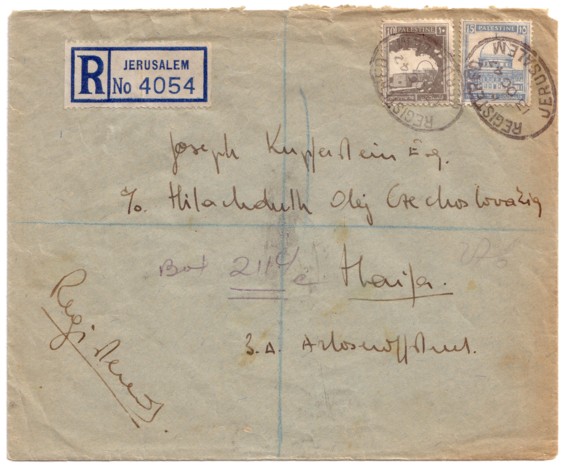 R JERUSALEM
No 4054
10 PALESTINE
15 PALESTINE 15
REGISTERED JERUSALEM
Joseph Kupferstein Esq.
c/o Hitachduth Olej Czechoslovakia
Box 2114 Haifa.
3.A. Arlosoroffstreet.
Registered